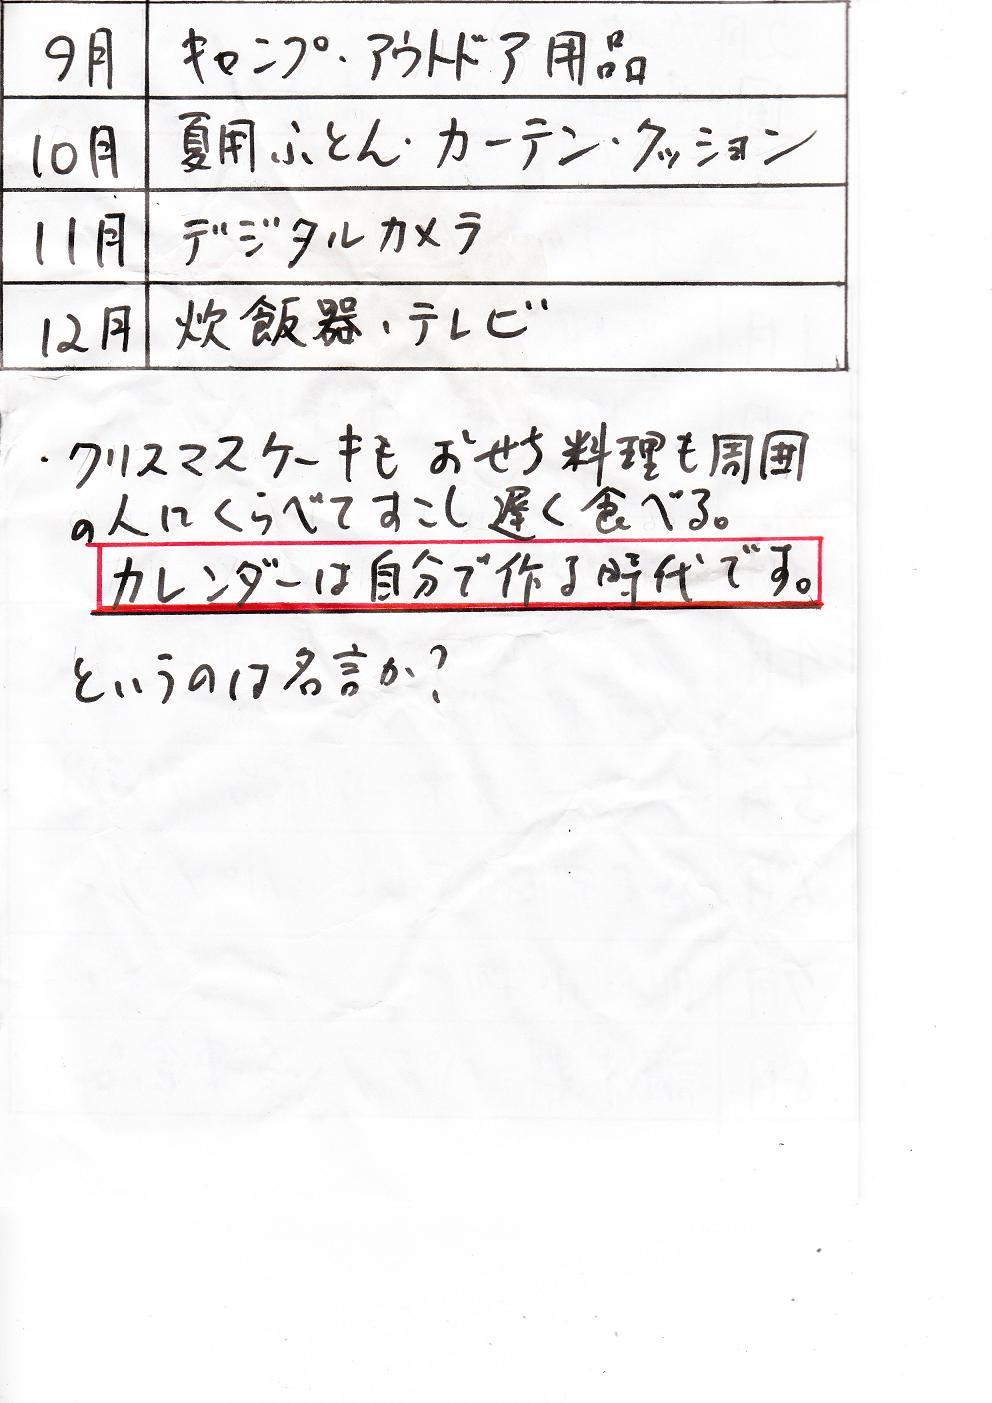 9月 キャンプ・アウトドア用品
10月 夏用ふとん・カーテン・クッション
11月 デジタルカメラ
12月 炊飯器、テレビ
・クリスマスケーキも おせち料理も周囲
の人にくらべてすこし遅く食べる。
カレンダーは自分で作る時代です。
というのは名言か?